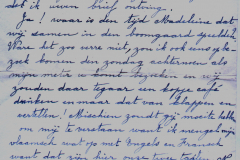 dok ik uwen brief ontving.
Ja! waar is den tijd Madeleine dat
wij samen in den boomgaard speelden
Ware het zoo verre niet, zou ik ook eens op be-
zoek komen den zondag achternoen als
mijn meta u komt bezoeken en wij
zouden daar tegaar een kopje café
drinken en maar dat van klappen en
vertellen! Misschien zondt gij moeite hebben
om mij te verstaan want ik mengel mijn
vlaamsch wat op met Engels en Fransch
want dat zijn hier onze twee talen